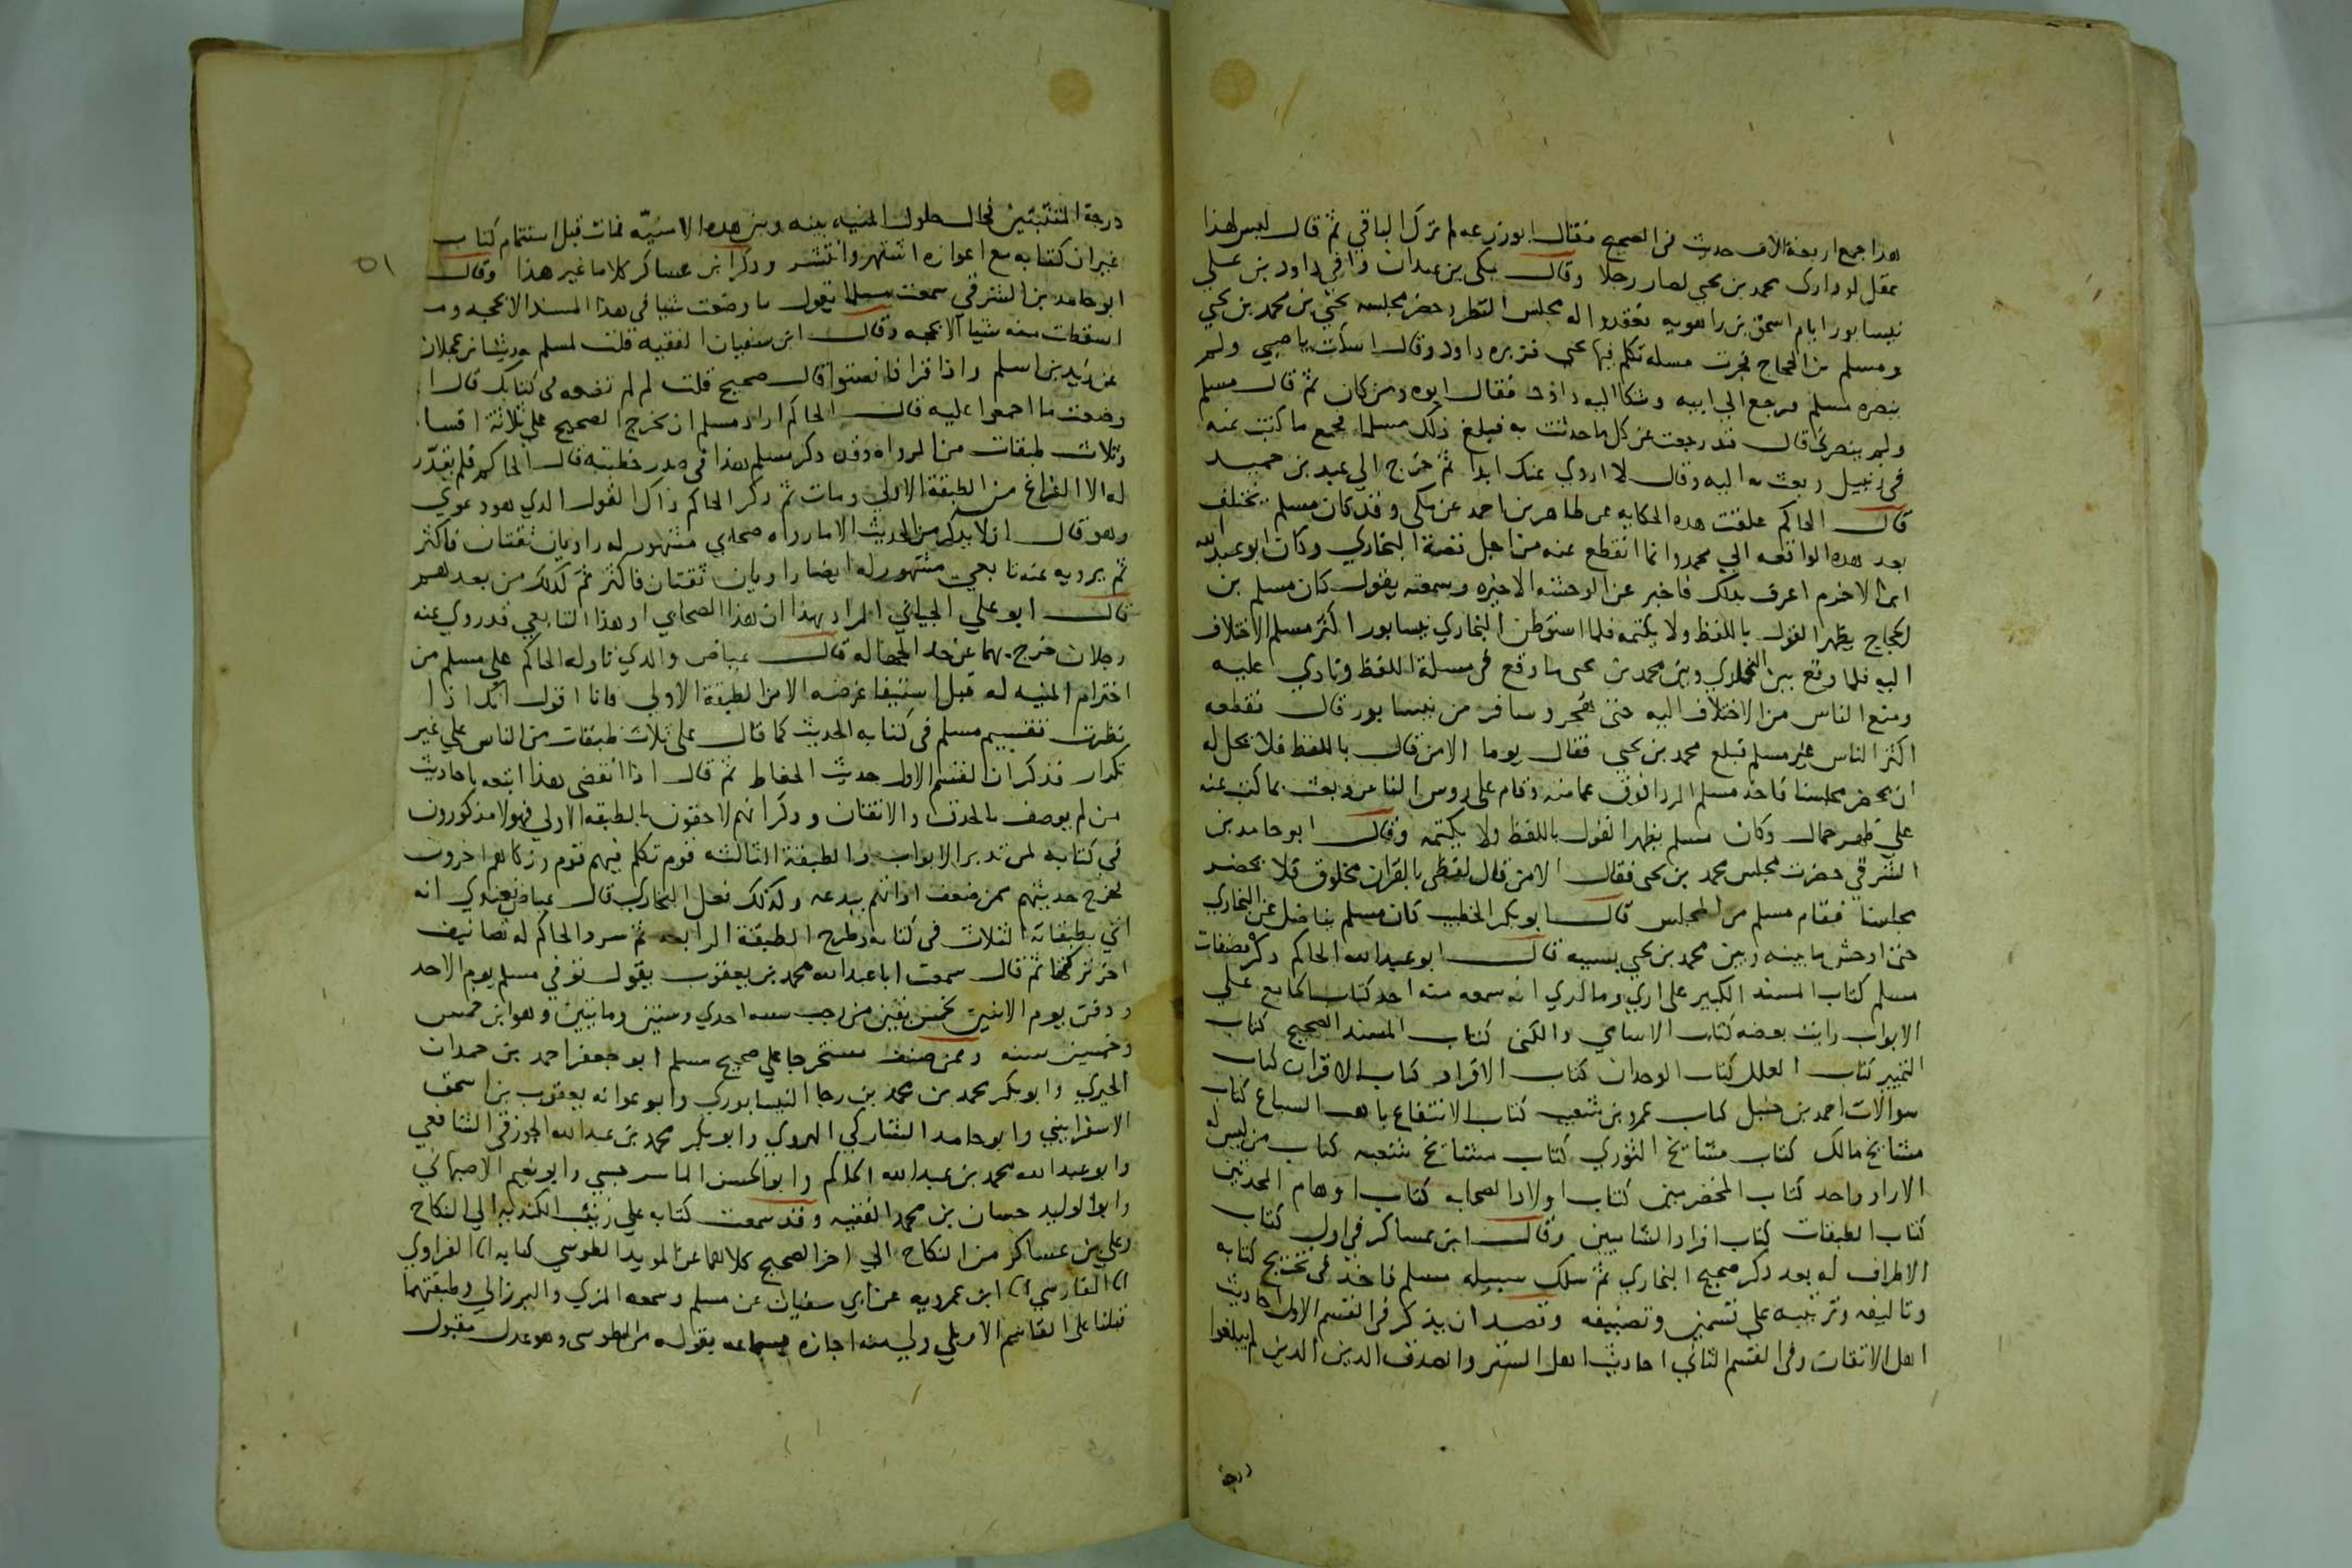 هذا جمع اربعة الاف حديث في الصحيح فقال ابو زرعه لم ترك الباقي ثم قال ليس لهذا
عقل لو دارى محمد بن يحيى لصار رجلا وقال مكي بن عبدان وافى داود بن علي
نيسابور ايام اسحق بن راهويه فعقدوا له مجلس النظر وحضر مجلسه يحيى بن محمد بن يحيى
ومسلم بن الحجاج فجرت مسله تكلم فيها يحيى فزبره داود وقال اسكت يا صبي ولم
ينصره مسلم فرجع الى ابيه وشكا اليه داود فقال ابوه ومن كان ثم قال مسلم
ولم ينصرني قال قد رجعت عن كل ما حدثته به فبلغ ذلك مسلما فجمع ما كتب عنه
في زنبيل وبعث به اليه وقال لا اروي عنك ابدا ثم خرج الى عبد بن حميد
قال الحاكم علقت هذه الحكايه عن طاهر بن احمد عن مكي وقد كان مسلم يختلف
بعد هذه الواقعه الى محمد وانما انقطع عنه من اجل قصة البخاري وكان ابو عبد الله
ابن الاخرم اعرف بذلك فاخبر عن الوحشه الاخيره وسمعته يقول كان مسلم بن
الحجاج يظهر القول باللفظ ولا يكتمه فلما استوطن البخاري نيسابور اكثر مسلم الاختلاف
اليه فلما وقع بين البخاري وبين محمد بن يحيى ما وقع في مسلة اللفظ ونادى عليه
ومنع الناس من الاختلاف اليه حتى هجر وسافر من نيسابور قال فقطعه
اكثر الناس غير مسلم فبلغ محمد بن يحيى فقال يوما الا من قال باللفظ فلا يحل له
ان يحضر مجلسنا فاخذ مسلم الردا فوق عمامته وقام على روس الناس وبعث بما كتب عنه
على ظهر جمال وكان مسلم يظهر القول باللفظ ولا يكتمه وقال ابو حامد بن
الشرقي حضرت مجلس محمد بن يحيى فقال الا من قال لفظي بالقران مخلوق فلا يحضر
مجلسنا فقام مسلم من المجلس قال ابو بكر الخطيب كان مسلم يناضل عن البخاري
حتى اوحش ما بينه وبين محمد بن يحيى بسببه قال ابو عبد الله الحاكم ذكر مصنفات
مسلم كتاب المسند الكبير على اري وما لدري انه سمعه منه احد كتاب الجامع على
الابواب رايت بعضه كتاب الاسامي والكنى كتاب المسند الصحيح كتاب
التمييز كتاب العلل كتاب الوحدان كتاب الافراد كتاب الاقران كتاب
سوالات احمد بن حنبل كتاب عمرو بن شعيب كتاب الانتفاع باهب السباع كتاب
مشايخ مالك كتاب مشايخ الثوري كتاب مشايخ شعبه كتاب من ليس له
الا راو واحد كتاب المخضرمين كتاب اولاد الصحابه كتاب اوهام المحدثين
كتاب الطبقات كتاب افراد الشاميين وقال ابن عساكر في اول كتاب
الاطراف له بعد ذكر صحيح البخاري ثم سلك سبيله مسلم فاخذ في تخريج كتابه
وتاليفه وترتيبه على قسمين وتصنيفه وقصد ان يذكر في القسم الاول احاديث
اهل الاتقان وفي القسم الثاني احاديث اهل الستر والصدق الذين الذين لم يبلغوا
درجة
٥١
درجة المتثبتين فحال حلول المنيه بينه وبين هذه الامنيّه فمات قبل استتمام كتاب
غير ان كتابه مع اعوازه اشتهر وانتشر وذكر ابن عساكر كلاما غير هذا وقال
ابو حامد بن الشرقي سمعت مسلما يقول ما وضعت شيا في هذا المسند الا بحجه وما
اسقطت منه شيا الا بحجه وقال ابن سفيان الفقيه قلت لمسلم حديث ابن عجلان
عن زيد بن اسلم واذا قرا فانصتوا قال صحيح قلت لم لم تضعه في كتابك قال انما
وضعت ما اجمعوا عليه قال الحاكم اراد مسلم ان يخرج الصحيح على ثلاثة اقسام
وثلاث طبقات من الرواه وقد ذكر مسلم هذا في صدر خطبته قال الحاكم فلم يقدّر
له الا الفراغ من الطبقة الاولى ومات ثم ذكر الحاكم ذاك القول الذي هو دعوى
وهو قال ان لا يذكر من الحديث الا ما رواه صحابي مشهور له راويان ثقتان فاكثر
ثم يرويه عنه تابعي مشهور له ايضا راويان ثقتان فاكثر ثم كذلك من بعدهم
قال ابو علي الجياني المراد بهذا ان هذا الصحابي او هذا التابعي قد روى عنه
رجلان خرج بهما عن حد الجهاله قال عياض والذي تاوله الحاكم على مسلم من
اخترام المنيه له قبل استيفا غرضه الا من الطبقة الاولى فانا اقول انك اذا
نظرت تقسيم مسلم في كتابه الحديث كما قال على ثلاث طبقات من الناس على غير
تكرار فذكر ان القسم الاول حديث الحفاظ ثم قال اذا انقضى هذا اتبعه باحاديث
من لم يوصف بالحذق والاتقان وذكر انهم لاحقون بالطبقه الاولى فهولا مذكورون
في كتابه لمن تدبر الابواب والطبقة الثالثه قوم تكلم فيهم قوم وزكاهم اخرون
فخرج حديثهم ممن ضعف او اتهم ببدعه وكذلك فعل البخاري قال عياض فعندي انه
اتى بطبقاته الثلاث في كتابه وطرح الطبقة الرابعه ثم سرد الحاكم له تصانيف
اخر تركتها ثم قال سمعت ابا عبد الله محمد بن يعقوب يقول توفي مسلم يوم الاحد
ودفن يوم الاثنين لخمس بقين من رجب سنه احدى وستين ومايتين وهو ابن خمس
وخمسين سنه وممن صنف مستخرجا على صحيح مسلم ابو جعفر احمد بن حمدان
الحيري وابو بكر محمد بن محمد بن رجا النيسابوري وابو عوانه يعقوب بن اسحق
الاسفراييني وابو حامد الشاركي الهروي وابو بكر محمد بن عبد الله الجوزقي الشافعي
وابو عبد الله محمد بن عبد الله الحاكم وابو الحسن الماسرجسي وابو نعيم الاصبهاني
وابو الوليد حسان بن محمد الفقيه وقد سمعت كتابه على زينب الكنديه الى النكاح
وعلى بن عساكر من النكاح الى اخر الصحيح كلاهما عن المويد الطوسي كتابه انا الفراوي
انا الفارسي انا ابن عمرويه عن ابي سفيان عن مسلم وسمعه المزي والبرزالي وطبقتهما
قبلنا على القاسم الاربلي ولي منه اجازه بسماعه بقوله من الطوسي وهو عدل مقبول